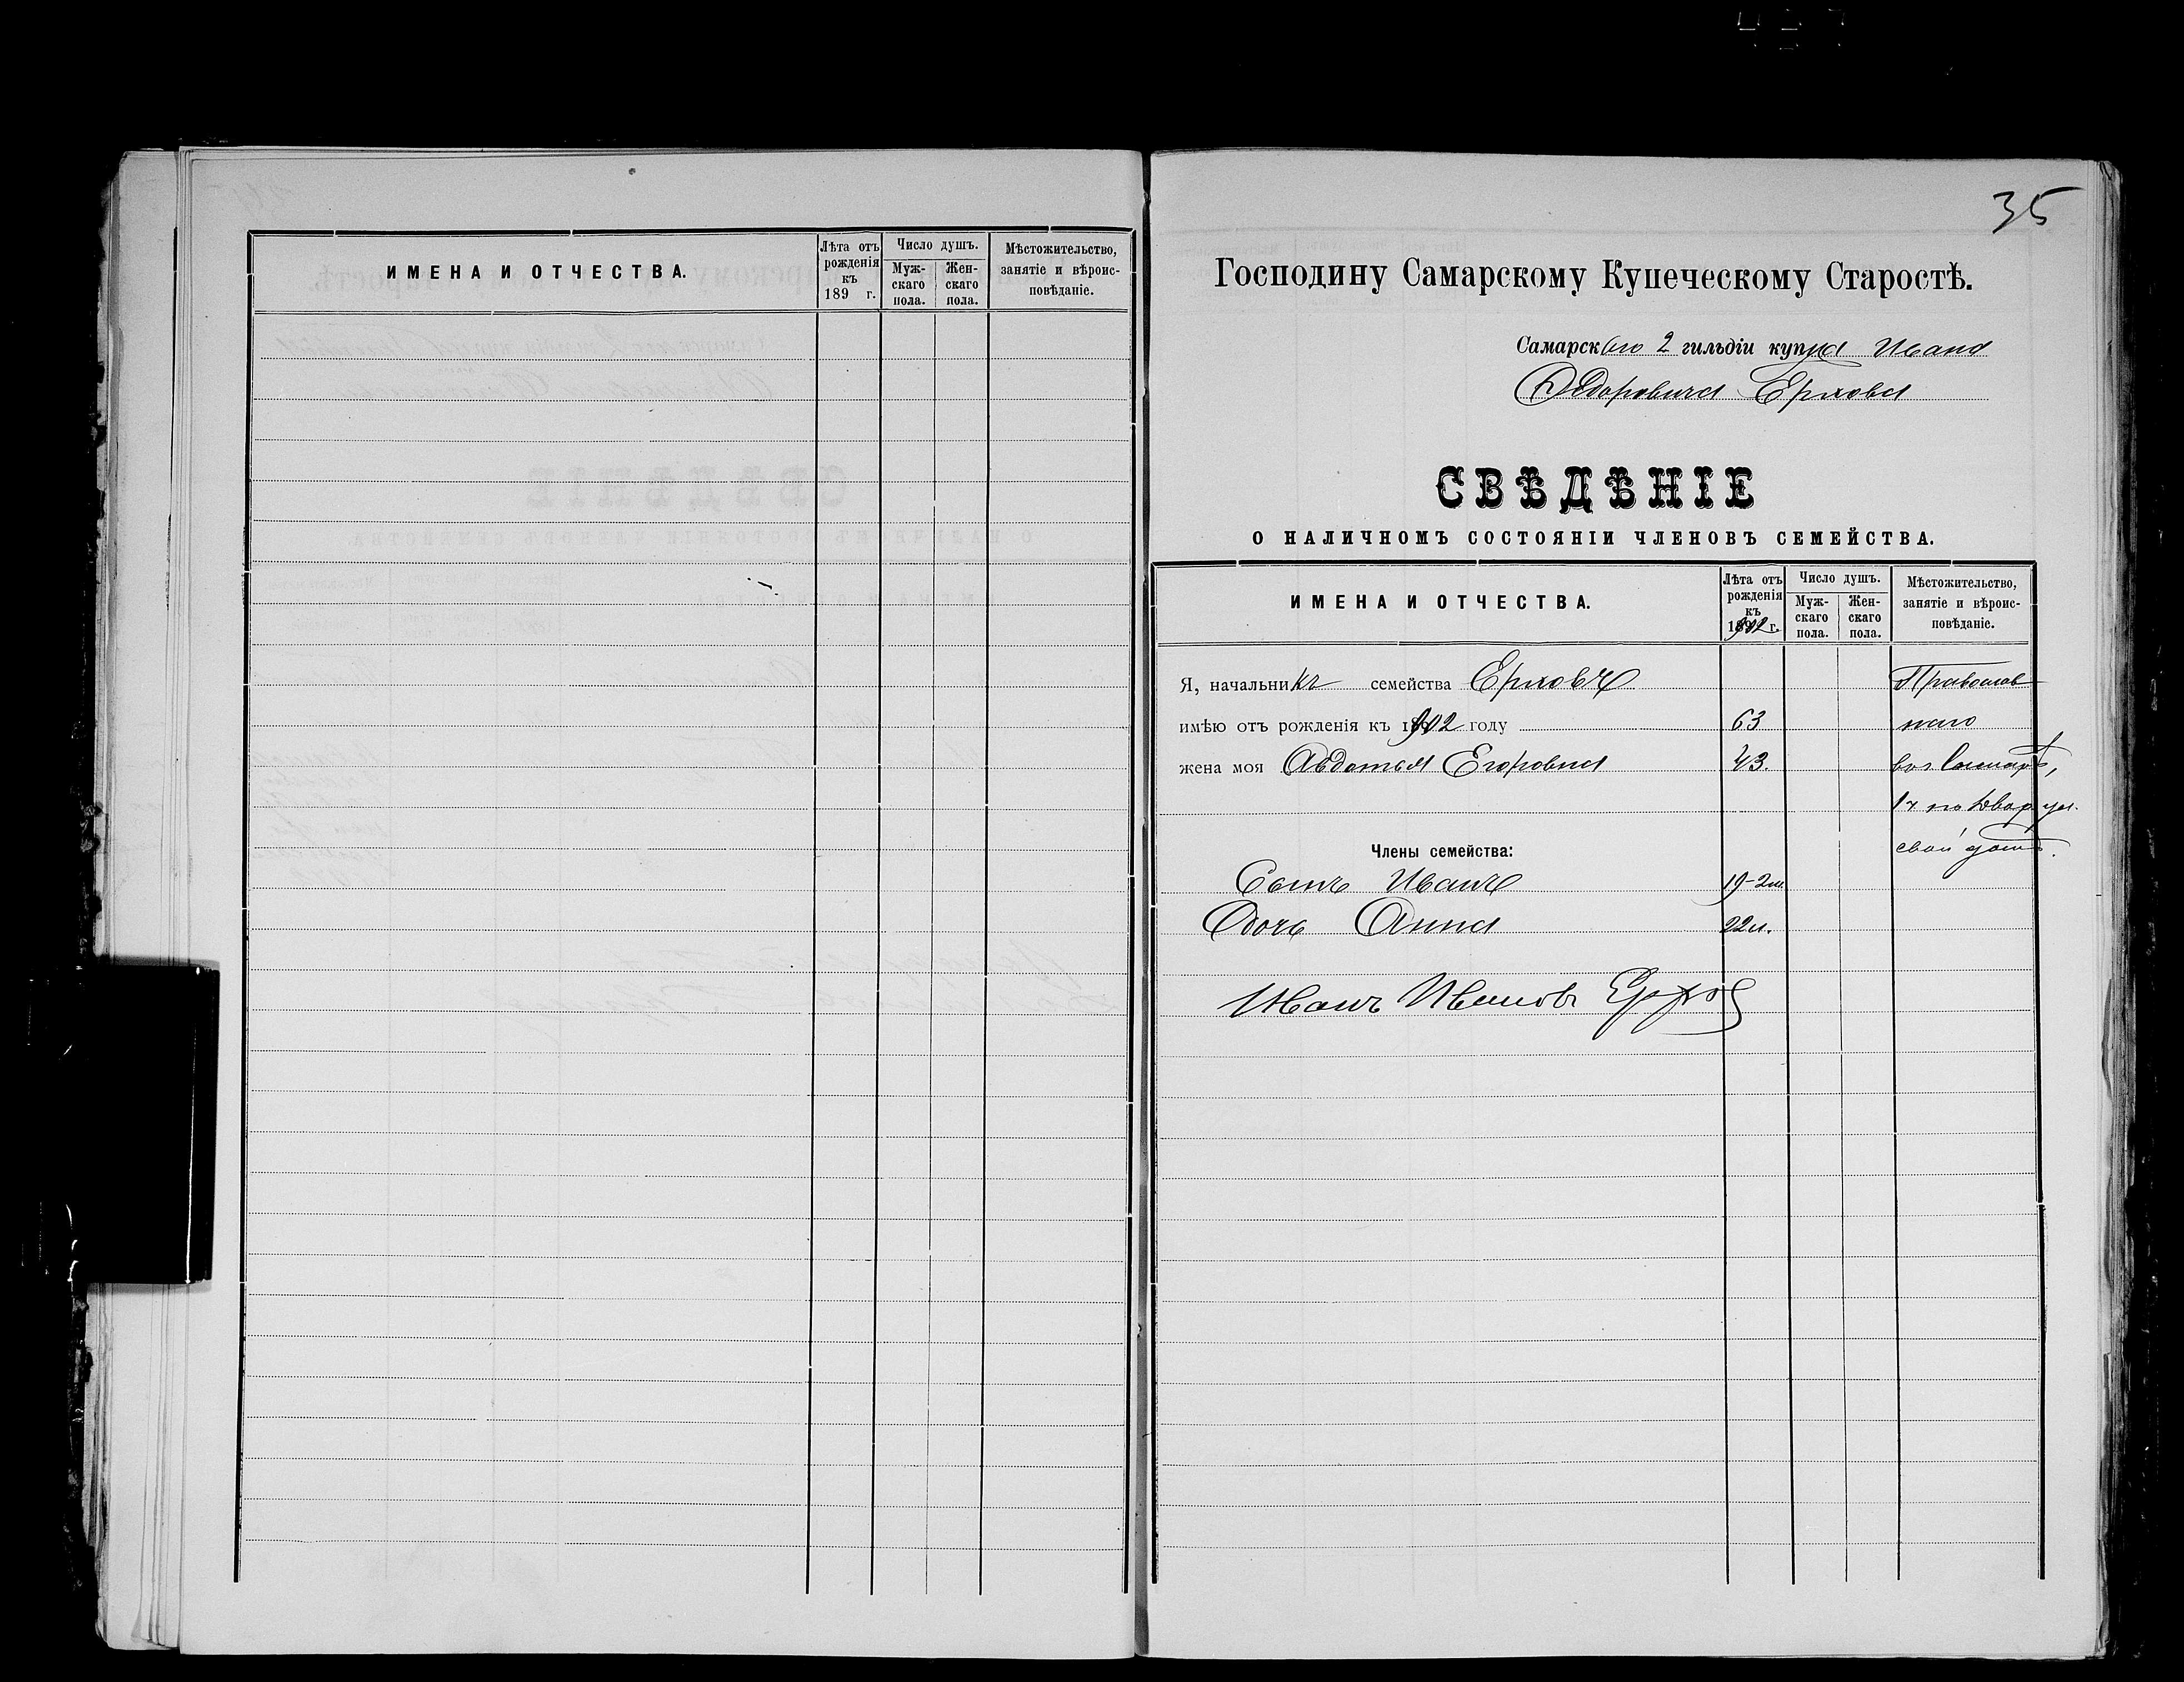 ИМЕНА И ОТЧЕСТВА.
Лѣта отъ рожденія къ 189 г.
Число душъ.
Муж-скаго пола.
Жен-скаго пола.
Мѣстожительство, занятіе и вѣроис-повѣданіе.
35
Господину Самарскому Купеческому Старостѣ.
Самарскаго 2 гильдіи купца Ивана
Ѳедоровича Ерхова
СВѢДѢНІЕ
О НАЛИЧНОМЪ СОСТОЯНІИ ЧЛЕНОВЪ СЕМЕЙСТВА.
ИМЕНА И ОТЧЕСТВА.
Лѣта отъ рожденія къ 1902 г.
Число душъ.
Муж-скаго пола.
Жен-скаго пола.
Мѣстожительство, занятіе и вѣроис-повѣданіе.
Я, начальникъ семейства Ерховъ Православ
имѣю отъ рожденія къ 1902 году 63 наго
жена моя Авдотья Егоровна 43. въ г. Самарѣ,
по Двор. ул.
Члены семейства: свой домъ.
Сынъ Иванъ 19-2м.
Дочь Анна 22л.
Иванъ Ивановъ Ерхов